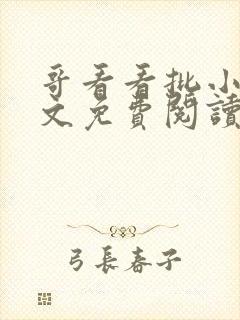 哥看看批小
文免費閱讀
弓長春子